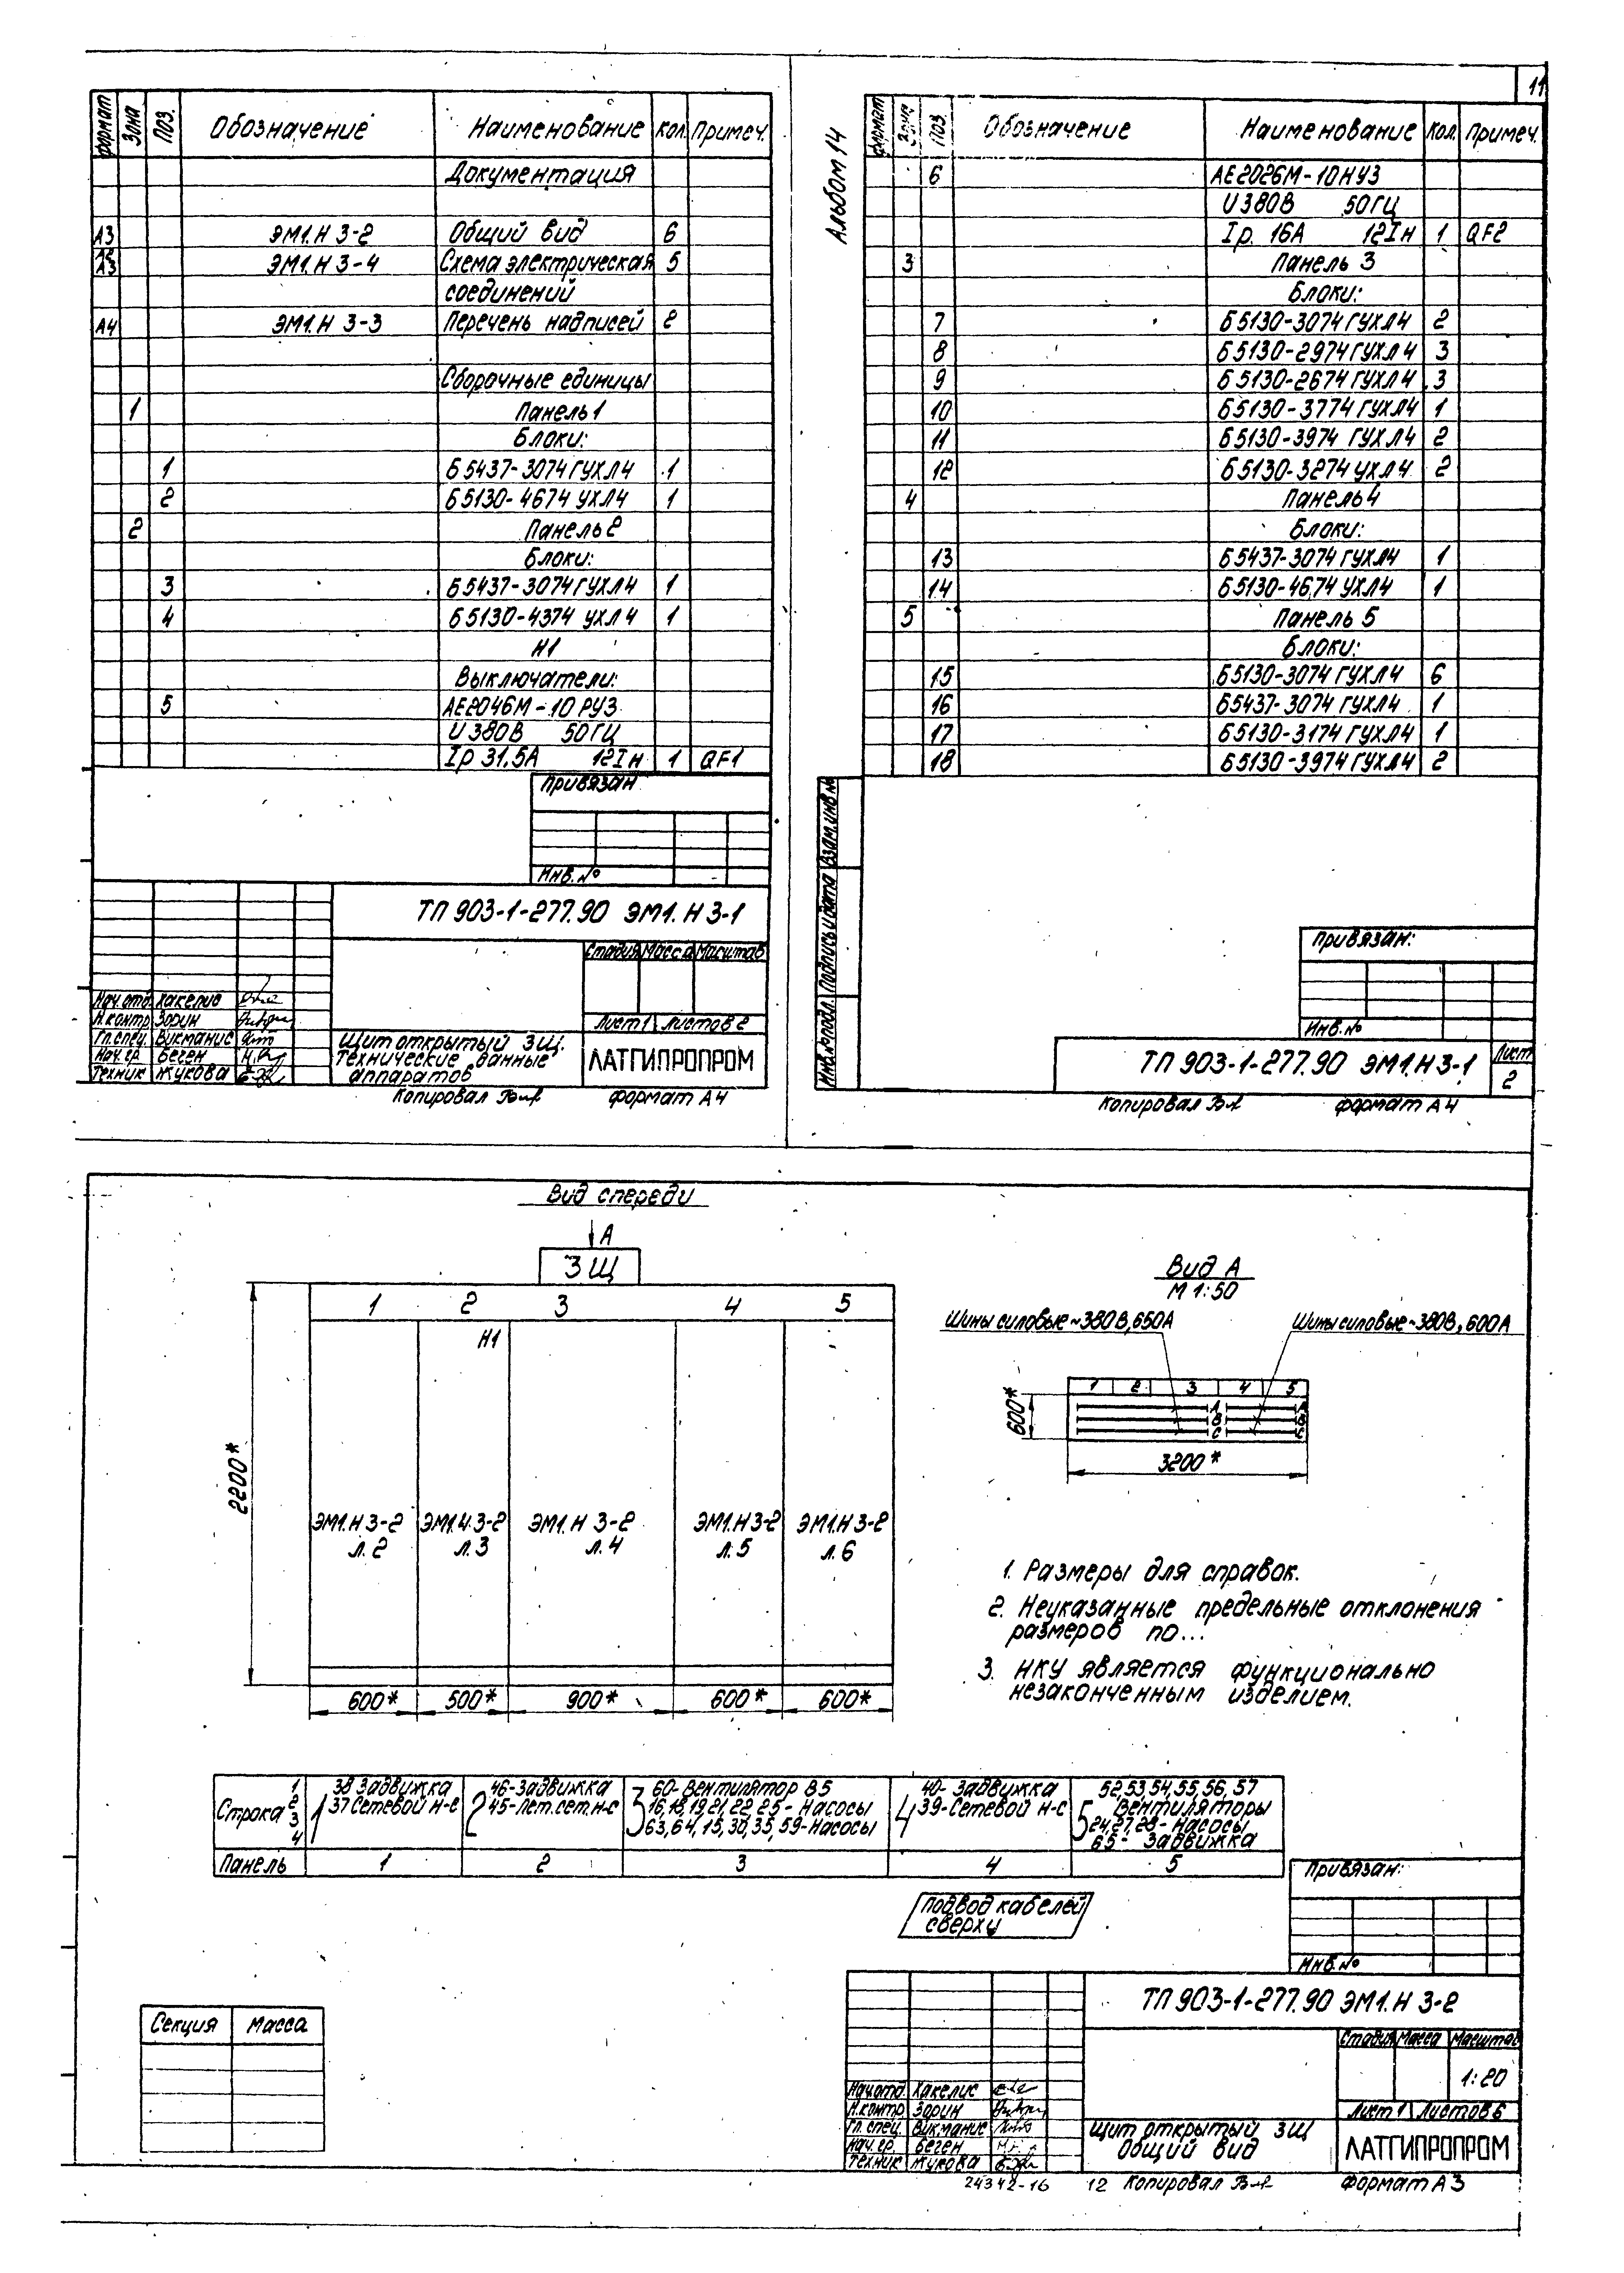 11
Альбом 14
формат Зона Поз. Обозначение Наименование Кол. Примеч.
Документация
А3 ЭМ1.Н 3-2 Общий вид 6
А3 ЭМ1.Н 3-4 Схема электрическая 5
соединений
А4 ЭМ1.Н 3-3 Перечень надписей 2
Сборочные единицы
1 Панель 1
Блоки:
1 Б5437-3074ГУХЛ4 1
2 Б5130-4674 УХЛ4 1
2 Панель 2
Блоки:
3 Б5437-3074ГУХЛ4 1
4 Б5130-4374 УХЛ4 1
Н1
Выключатели:
5 АЕ2046М-10РУ3
U 380В 50ГЦ
Iр 31.5А 12Iн 1 QF1
Привязан
Инв. №
ТП 903-1-277.90 ЭМ1.Н 3-1
Стадия Масса Масштаб
Лист 1 Листов 2
Нач. отд. Хакелис
Н.контр Зорин
Гл.спец. Викманис
Нач.гр. Беген
Техник Жукова
Щит открытый 3Щ.
Технические данные
аппаратов
ЛАТГИПРОПРОМ
Копировал формат А4
формат Поз. Обозначение Наименование Кол. Примеч.
6 АЕ2026М-10НУ3
U 380В 50ГЦ
Iр. 16А 12Iн 1 QF2
3 Панель 3
Блоки:
7 Б5130-3074ГУХЛ4 2
8 Б5130-2974ГУХЛ4 3
9 Б5130-2674ГУХЛ4 3
10 Б5130-3774ГУХЛ4 1
11 Б5130-3974ГУХЛ4 2
12 Б5130-3274УХЛ4 2
4 Панель 4
Блоки:
13 Б5437-3074ГУХЛ4 1
14 Б5130-4674 УХЛ4 1
5 Панель 5
Блоки:
15 Б5130-3074ГУХЛ4 6
16 Б5437-3074ГУХЛ4 1
17 Б5130-3174ГУХЛ4 1
18 Б5130-3974ГУХЛ4 2
Инв.№подл. Подпись и дата Взам.инв.№
Привязан:
Инв.№
ТП 903-1-277.90 ЭМ1.Н 3-1
Лист
2
Копировал формат А4
Вид спереди
А
3Щ
1 2 3 4 5
Н1
2200*
ЭМ1.Н 3-2 ЭМ1.Н.3-2 ЭМ1.Н 3-2 ЭМ1.Н 3-2 ЭМ1.Н 3-2
л. 2 л. 3 л. 4 л. 5 л. 6
600* 500* 900* 600* 600*
Вид А
М 1:50
Шины силовые ~380В, 650А
Шины силовые ~380В, 600А
1 2 3 4 5
А А
В В
С С
600*
3200*
1. Размеры для справок.
2. Неуказанные предельные отклонения
размеров по...
3. НКУ является функционально
незаконченным изделием.
Строка 1 2 3 4
1 38 Задвижка
37 Сетевой н-с
2 46-Задвижка
45-Лет.сет.н-с
3 60-Вентилятор В5
16,18,19,21,22,25-Насосы
63,64,15,30,35,59-Насосы
4 40-Задвижка
39-Сетевой н-с
5 52,53,54,55,56,57
Вентиляторы
24,27,28-Насосы
65-Задвижка
Панель 1 2 3 4 5
Подвод кабелей
сверху
Секция Масса
Привязан:
Инв.№
ТП 903-1-277.90 ЭМ1.Н 3-2
Стадия Масса Масштаб
1:20
Лист 1 Листов 6
Нач.отд. Хакелис
Н.контр Зорин
Гл.спец. Викманис
Нач.гр. Беген
Техник Жукова
Щит открытый 3Щ
Общий вид
ЛАТГИПРОПРОМ
24342-16 12 Копировал Формат А3